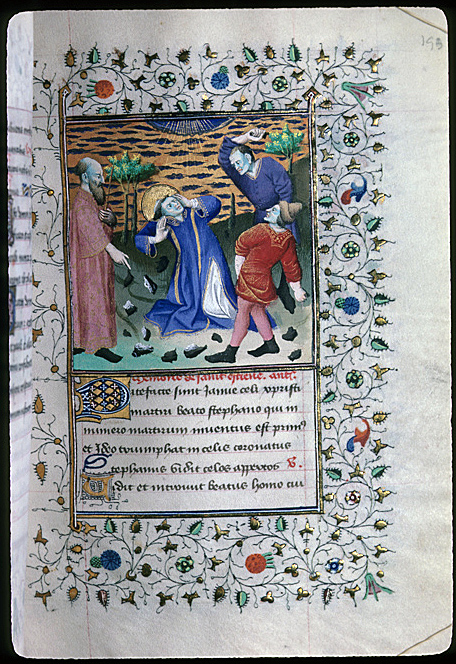 193
Memoire de saint estiene. antᵉ.
Patefacte sunt Janue celi xpristi
martiri beato stephano qui in
numero martirum inuentus est primᵘˢ
et Ideo triumphat in celis coronatus
Stephanus vidit celos appertos
Vidit et introiuit beatus homo cui